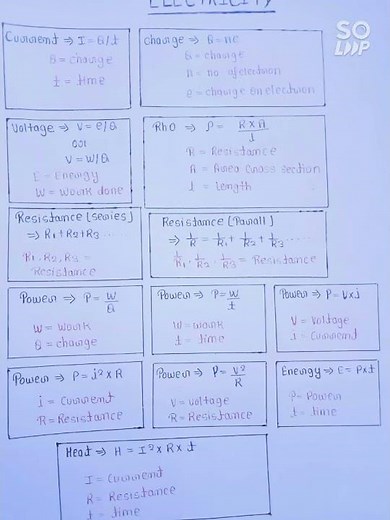 ELECTRICITY
SO
LOOP
Current ⇒ I = Q/t
Q = charge
t = time
charge ⇒ Q = ne
Q = charge
n = no of electron
e = charge on electron
Voltage ⇒ V = E/Q
or
V = W/Q
E = Energy
W = Work done
Rho ⇒ ρ = R×A/l
R = Resistance
A = Area cross section
l = Length
Resistance (series)
⇒ R1 + R2 + R3 ......
R1, R2, R3 =
Resistance
Resistance (Parall)
⇒ 1/R = 1/R1 + 1/R2 + 1/R3 ......
1/R1, 1/R2, 1/R3 = Resistance
Power ⇒ P = W/Q
W = Work
Q = charge
Power ⇒ P = W/t
W = work
t = time
Power ⇒ P = V×i
V = Voltage
i = Current
Power ⇒ P = i² × R
i = Current
R = Resistance
Power ⇒ P = V²/R
V = voltage
R = Resistance
Energy ⇒ E = P×t
P = Power
t = time
Heat ⇒ H = I² × R × t
I = Current
R = Resistance
t = time